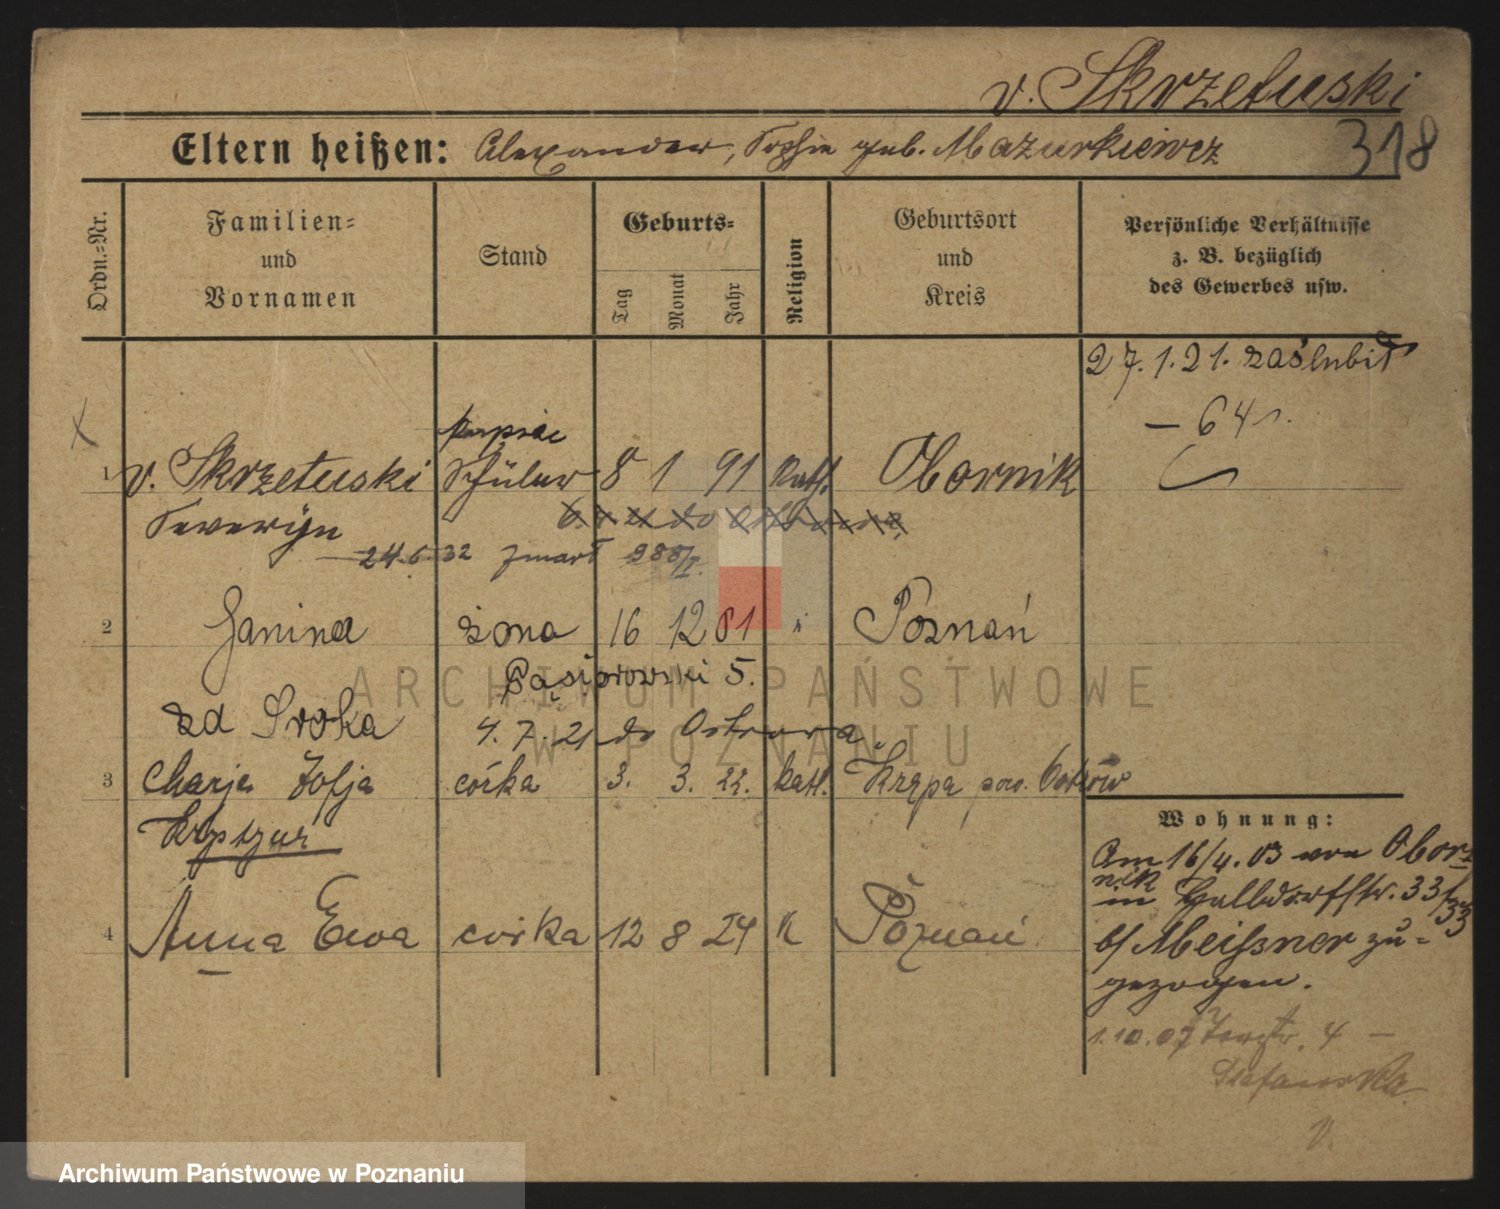 v. Skrzetuski
Eltern heißen: Alexander, Sophie geb. Mazurkiewicz
318
Ordn.=Nr.
Familien=
und
Vornamen
Stand
Geburts=
Tag
Monat
Jahr
Religion
Geburtsort
und
Kreis
Persönliche Verhältnisse
z. B. bezüglich
des Gewerbes usw.
27.1.21. zaślubił
– 64
kupiec
1 v. Skrzetuski Schüler 8 1 91 kath. Obornik
Severyn
24.6.32 zmarł 988/I.
2 Janina żona 16 12 81 Poznań
Gąsiorowski 5.
zd Sroka 4.7.21 do Ostrowa
3 Marja Zofja córka 3. 3. 22. kath. Krępa pow. Ostrów
4 Anna Ewa córka 12 8 24 K Poznań
Wohnung:
Am 16/4.03 von Obor=
nik
in 33
b/ Meißner zu=
gezogen.
1.10.07 4 –
ARCHIWUM PAŃSTWOWE
W POZNANIU
Archiwum Państwowe w Poznaniu